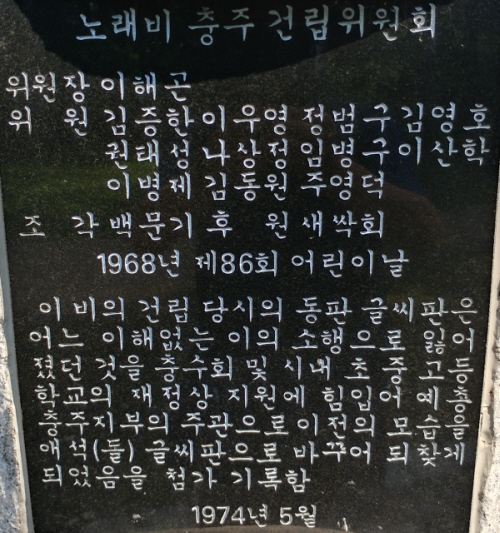 노래비 충주 건립위원회
위원장 이해곤
위 원 김증한 이우영 정범구 김영호
권태성 나상정 임병구 이산학
이병제 김동원 주영덕
조 각 백문기 후 원 새싹회
1968년 제86회 어린이날
이 비의 건립 당시의 동판 글씨판은
어느 이해없는 이의 소행으로 잃어
졌던 것을 충수회 및 시내 초 중 고등
학교의 재정상 지원에 힘입어 예총
충주지부의 주관으로 이전의 모습을
애석(돌) 글씨판으로 바꾸어 되찾게
되었음을 첨가 기록함
1974년 5월